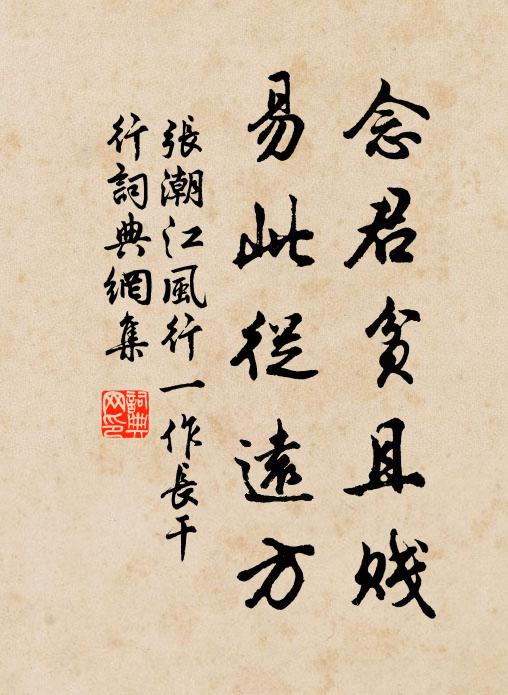 念君貧且賤
易此從遠方
張潮江風行一作長干
行詞典網集
詞典网印